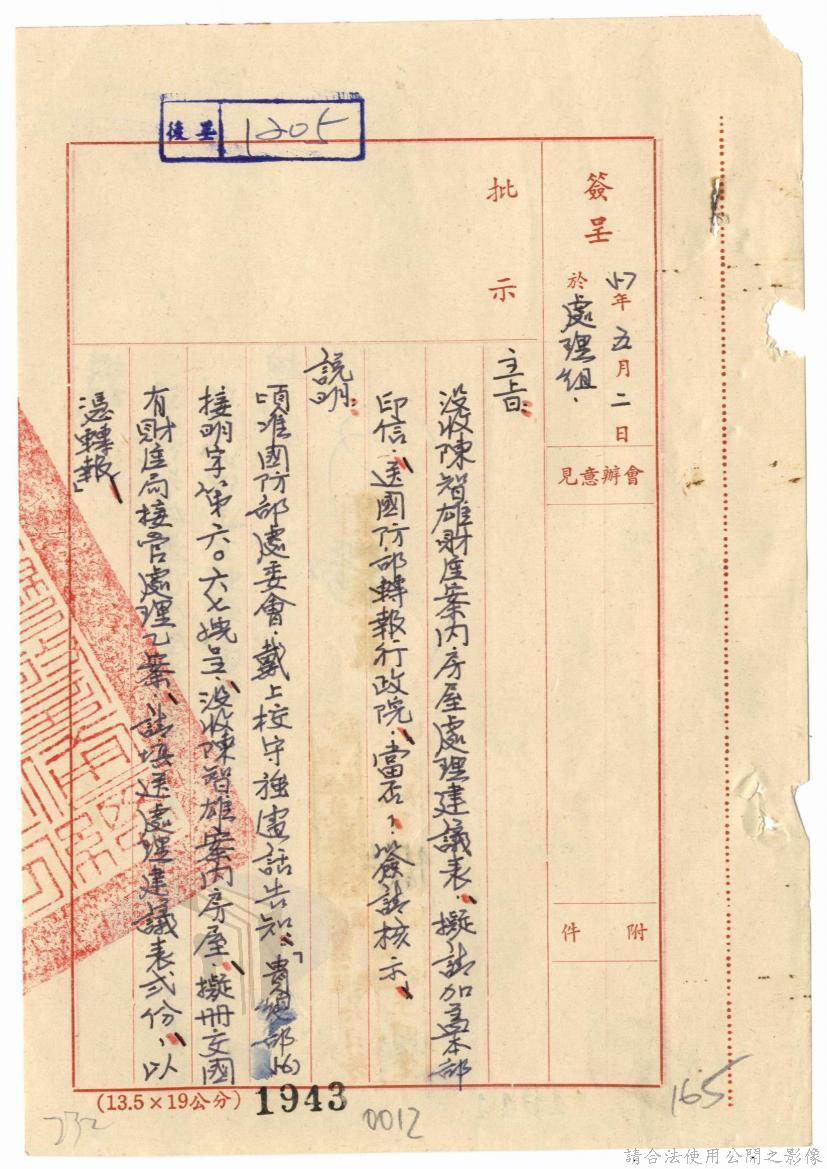 後呈 1205
簽呈
57年五月二日
於處理組.
會辦意見
附件
批示
主旨:
沒收陳智雄財產案內房屋處理建議表、擬請加蓋本部
印信、送國防部轉報行政院、當否、簽請核示、
說明:
頃准國防部處委會、戴上校守 電話告知:「貴總部(56)
接明字第六〇六七號呈、沒收陳智雄案內房屋、擬冊交國
有財產局接管處理乙案、請填送處理建議表弍份、以
憑轉報」
(13.5×19公分)
1943
0012
165
732
請合法使用公開之影像